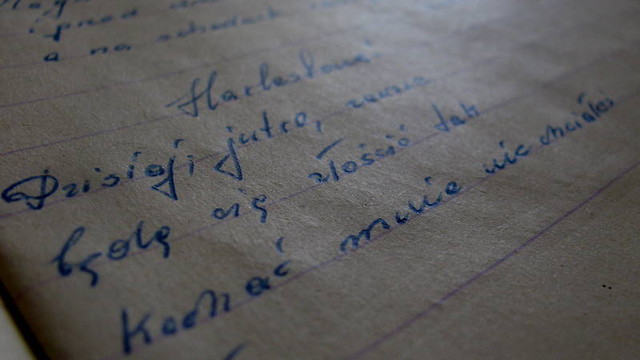 i przed
a na schodach
Dzisiaj i jutro, zawsze
będę się złościć tak
Kochać mnie nie chciałeś